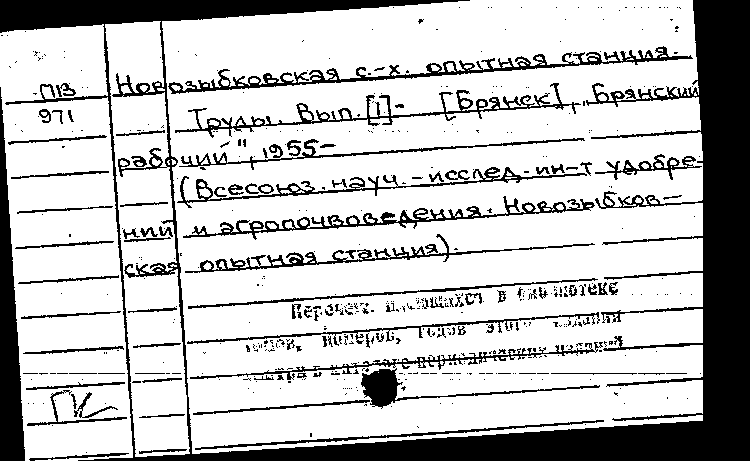 Новозыбковская с.-х. опытная станция.
П13
971
Труды. Вып. [1]- [Брянск], „Брянский
рабочий", 1955-
(Всесоюз. науч.-исслед. ин-т удобре-
ний и агропочвоведения. Новозыбков-
ская опытная станция).
Перечень имеющихся в библиотеке
томов, номеров, годов этого издания
смотри в каталоге периодических изданий